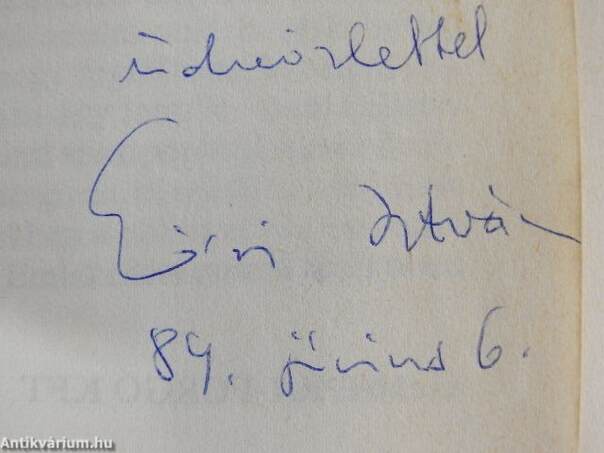 üdvözlettel
Eörsi István
89. június 6.
Antikvárium.hu